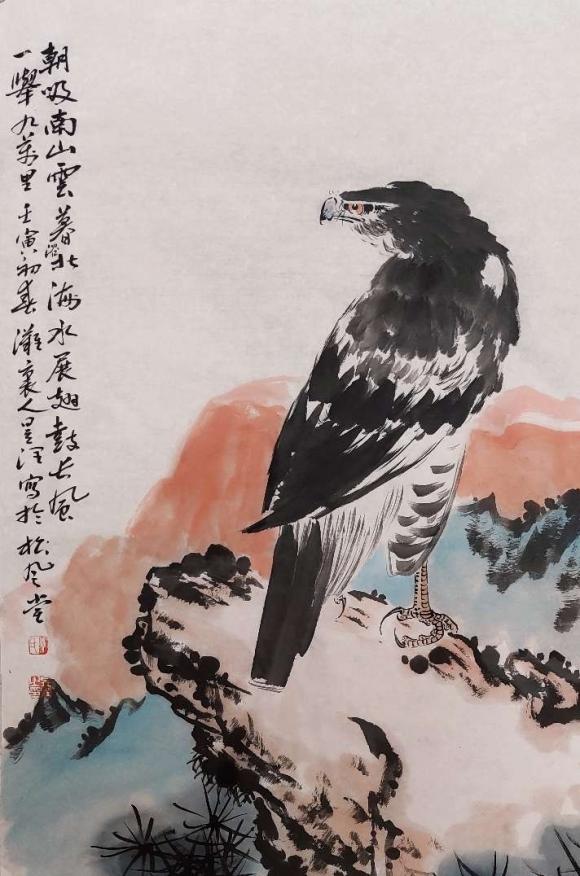 朝吸南山雲暮歠北海水展翅鼓長風
一舉九萬里 壬寅初春 濰襄人星泽寫於松風堂